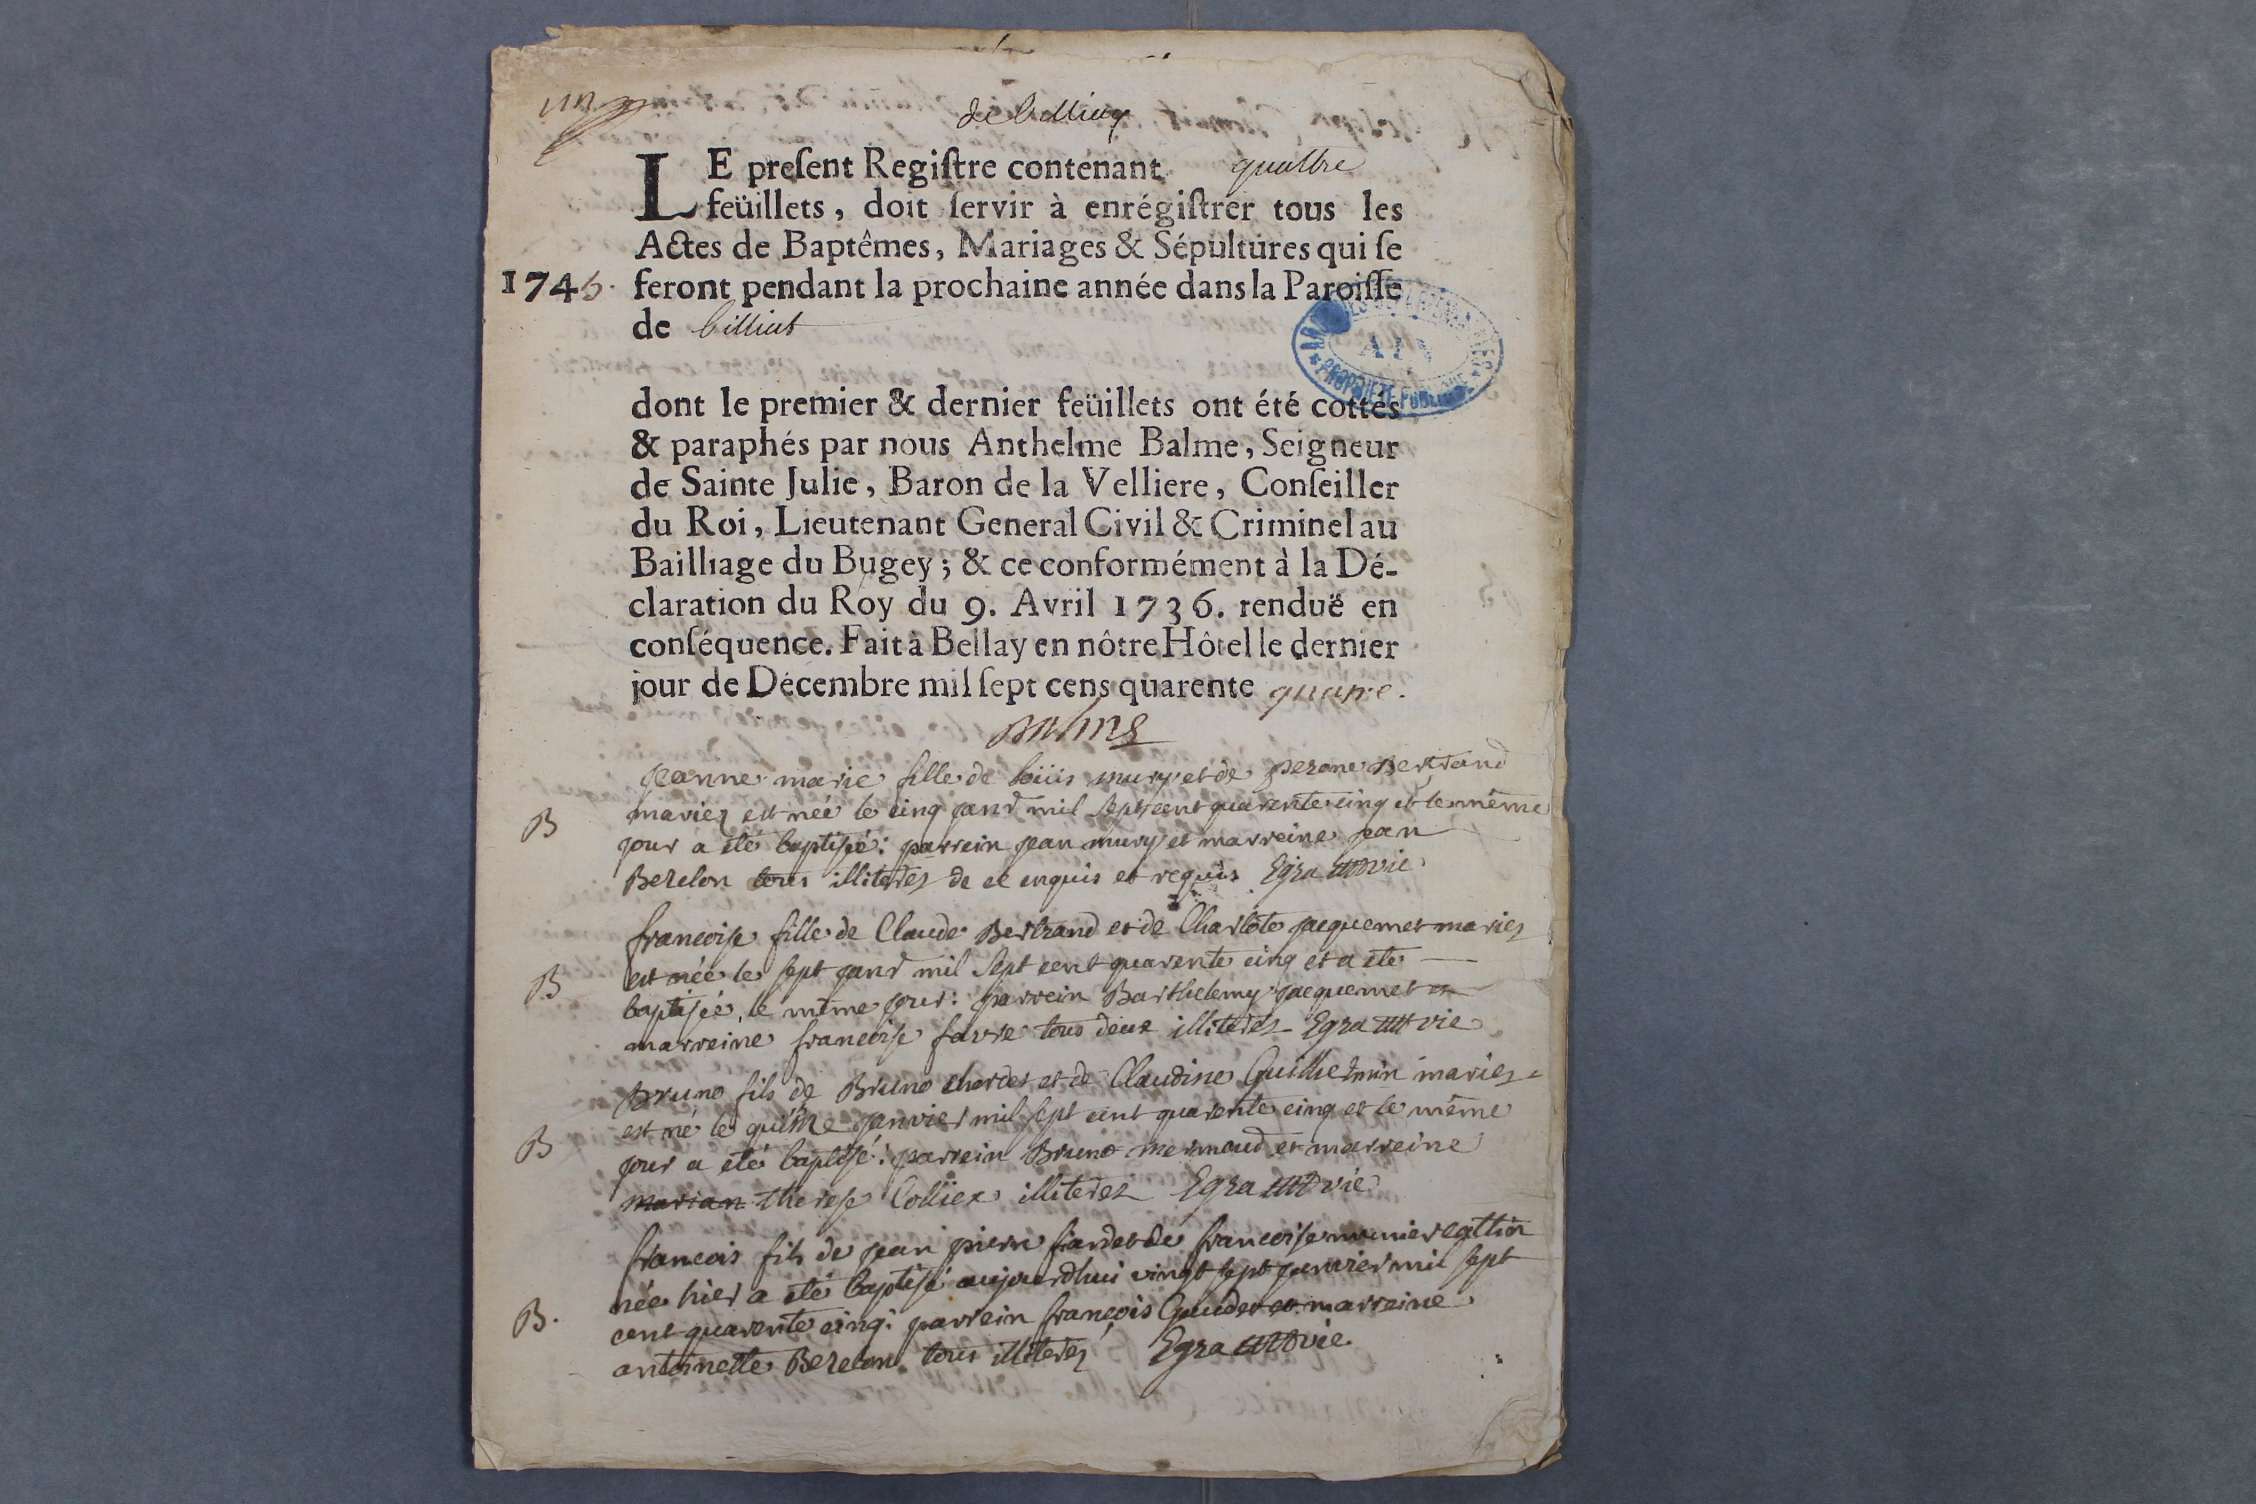 un
de billiat
LE preſent Regiſtre contenant quattre
feüillets, doit ſervir à enrégiſtrer tous les
Actes de Baptêmes, Mariages & Sépultures qui ſe
1745. feront pendant la prochaine année dans la Paroiſſe
de billiat
ARCHIVES DEPARTEMENTALES
AIN
PROPRIETE PUBLIQUE
dont le premier & dernier feüillets ont été cottés
& paraphés par nous Anthelme Balme, Seigneur
de Sainte Julie, Baron de la Velliere, Conſeiller
du Roi, Lieutenant General Civil & Criminel au
Bailliage du Bugey; & ce conformément à la Dé-
claration du Roy du 9. Avril 1736. renduë en
conſéquence. Fait à Bellay en nôtre Hôtel le dernier
jour de Décembre mil ſept cens quarente quatre.
Balme
jeanne marie fille de loüis mury et de perone Bertrand
mariez est neé le cinq janr mil sept cent quarente cinq et le même
B jour a eté baptisé: parrein jean mury et marreine jean
Berelon tous illiterez de ce enquis et requis Egra vie
francoise fille de Claude Bertrand et de Charlote jacquemet mariez
est neé le sept janr mil sept cent quarente cinq et a ete
B baptiseé le même jour: parrein Barthelemy jacquemet et
marreine francoise favre tous deux illiterez Egra vie
Bruno fils de Bruno chardet et de Claudine Guilhermin mariez
est né le quinze janvier mil sept cent quarente cinq et le même
B jour a eté baptisé: parrein Bruno mermoud et marreine
marian therese Colliex illiterez Egra vie
francois fils de jean pierre et de francoise
neé hier a eté baptisé aujourdhui vingt sept janvier mil sept
B. cent quarente cinq: parrein françois et marreine
antoinette Berelon tous illiterez Egra vie